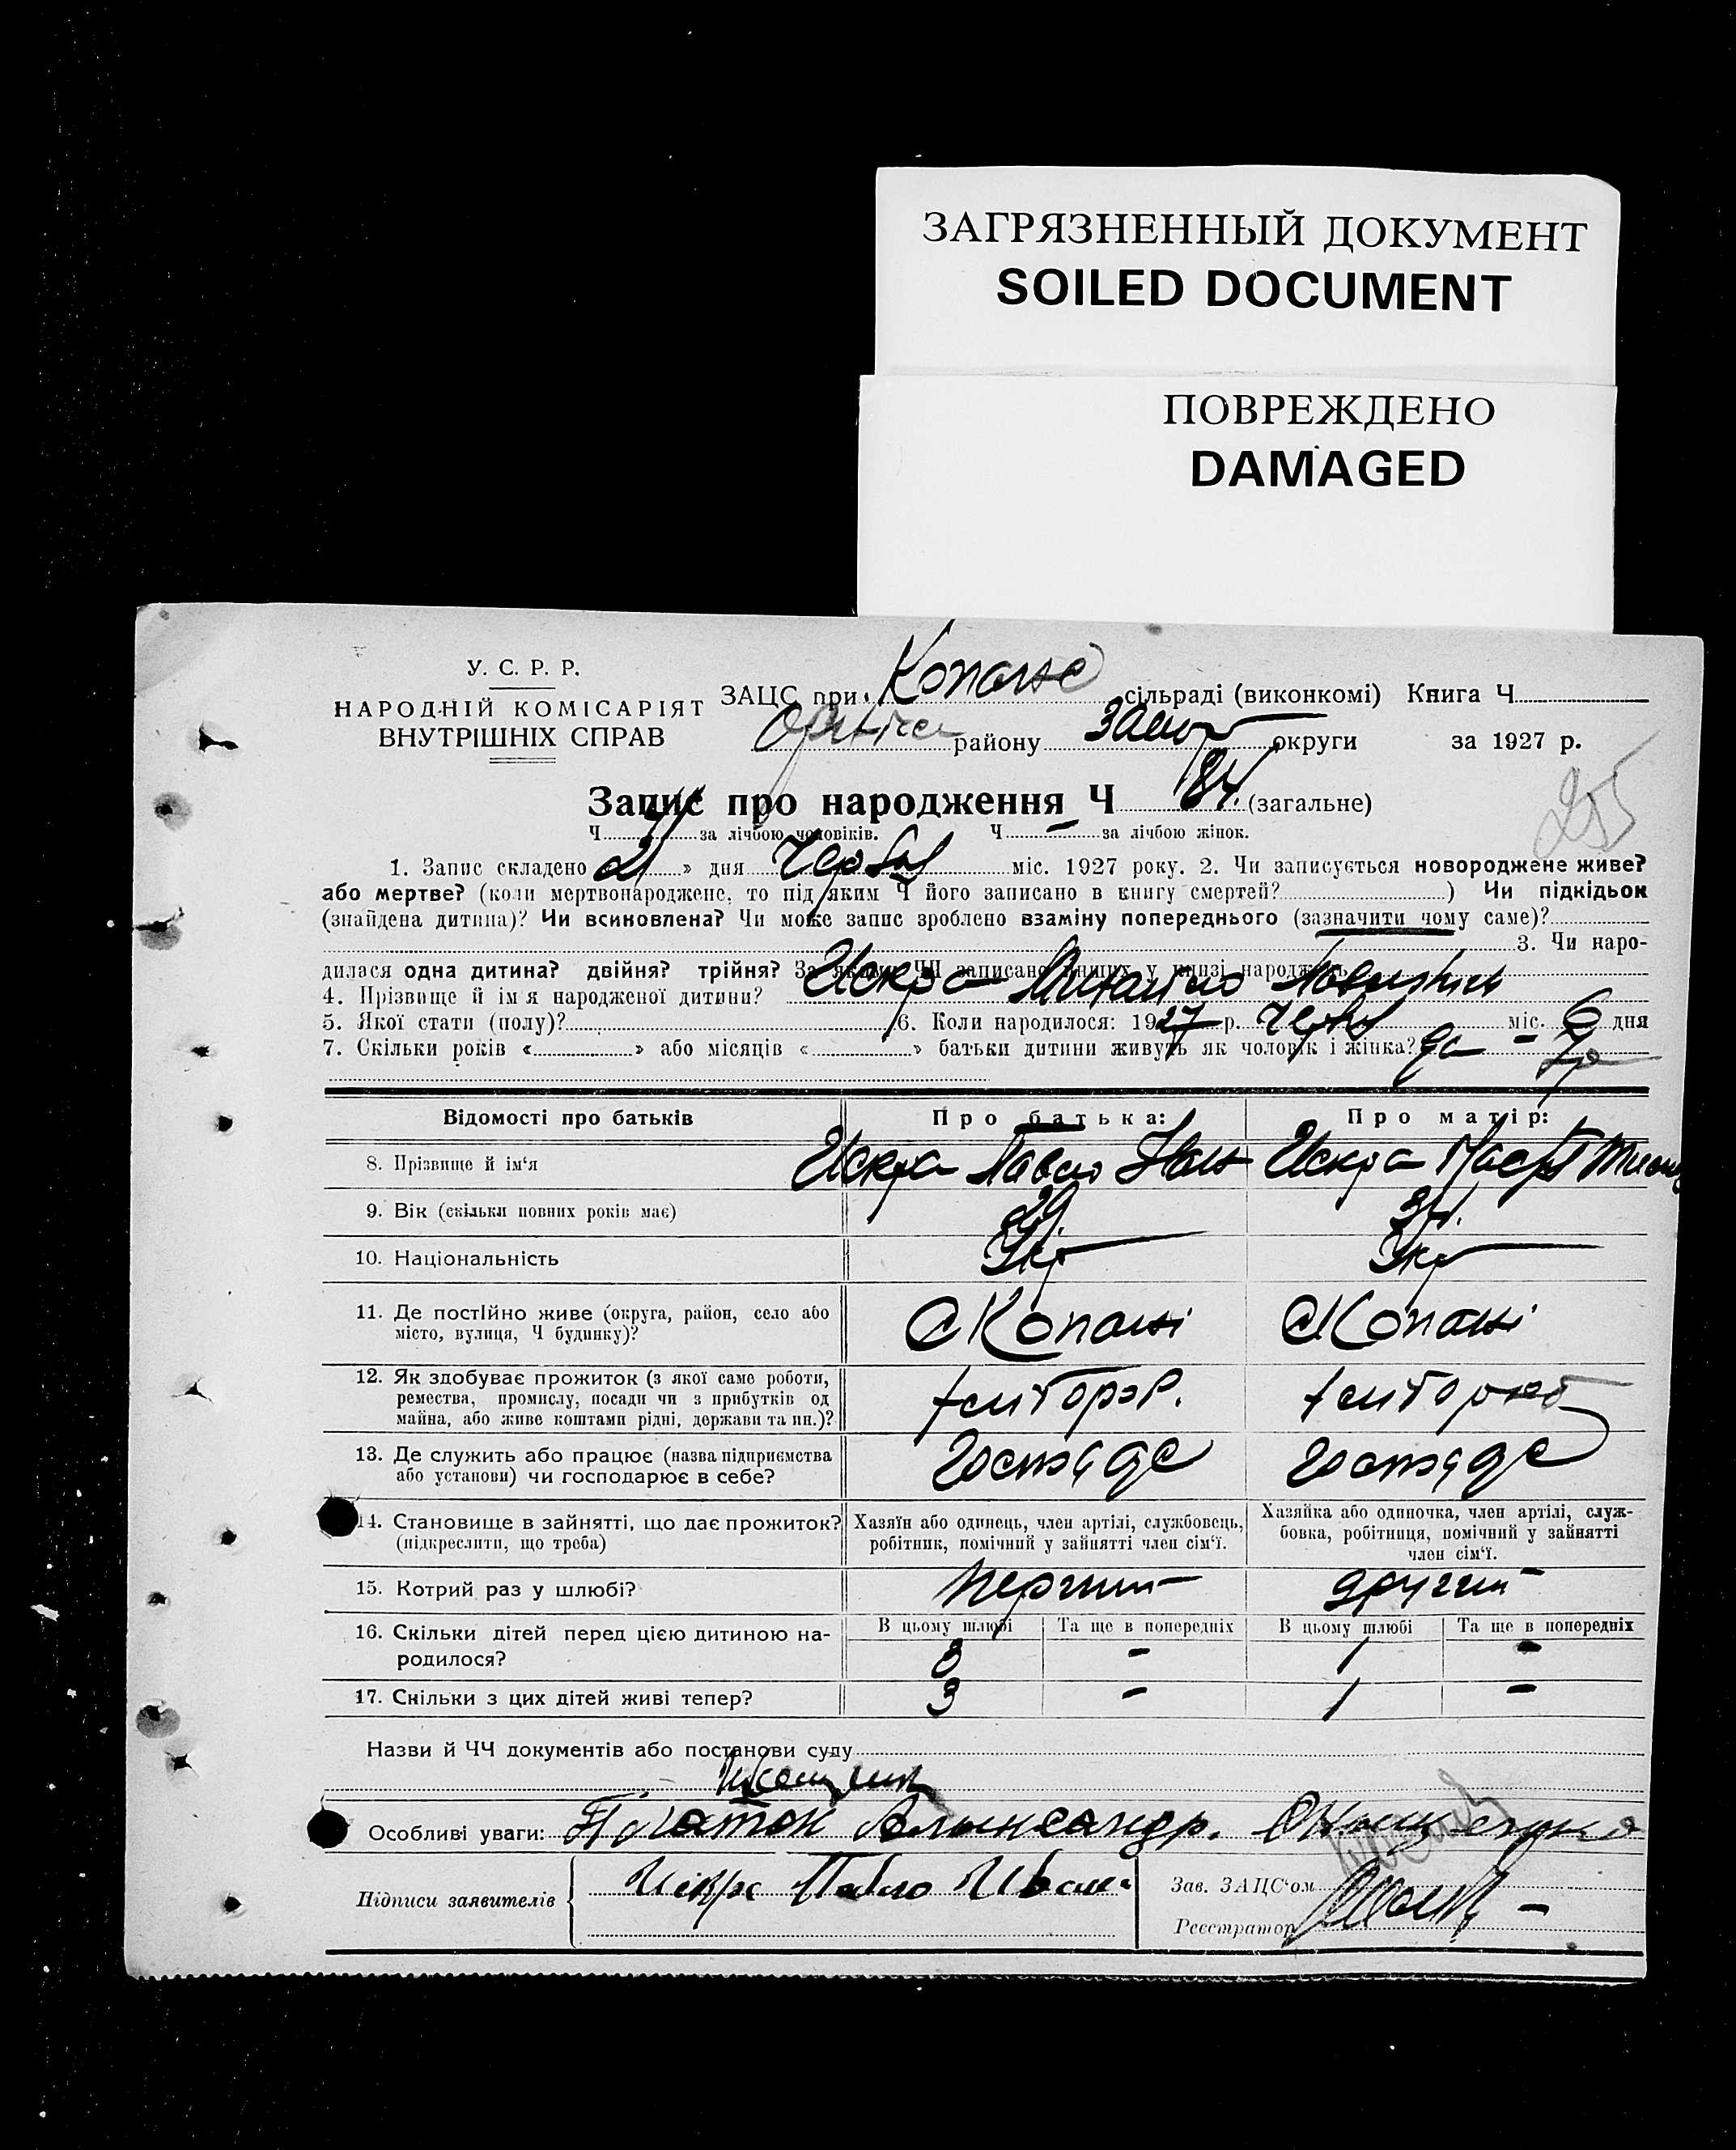 ЗАГРЯЗНЕННЫЙ ДОКУМЕНТ
SOILED DOCUMENT
ПОВРЕЖДЕНО
DAMAGED
У. С. Р. Р.
НАРОДНІЙ КОМІСАРІЯТ
ВНУТРІШНІХ СПРАВ
ЗАЦС при Копане сільраді (виконкомі) Книга Ч.
району Запор округи за 1927 р.
255
Запис про народження Ч 184. (загальне)
Ч за лічбою чоловіків. Ч – за лічбою жінок.
1. Запис складено « 21 » дня Черв міс. 1927 року. 2. Чи записується новороджене живе?
або мертве? (коли мертвонароджене, то під яким Ч його записано в книгу смертей? ) Чи підкідьок
(знайдена дитина)? Чи всиновлена? Чи може запис зроблено взаміну попереднього (зазначити чому саме)?
3. Чи наро-
дилася одна дитина? двійня? трійня? За якими ЧЧ записано инших у книзі народжень
4. Прізвище й ім'я народженої дитини? Искра Михайло Павлович
5. Якої стати (полу)? 6. Коли народилося: 1927 р. Черв міс. 6 дня
7. Скільки років « » або місяців « » батьки дитини живуть як чоловік і жінка? да – да
Відомості про батьків Про батька: Про матір:
8. Прізвище й ім'я Искра Павло Иван Искра Наст
9. Вік (скільки повних років має) 29. 31.
10. Національність Укр Укр
11. Де постІйно живе (округа, район, село або місто, вулиця, Ч будинку)? с Копані с Копані
12. Як здобуває прожиток (з якої саме роботи,
ремества, промислу, посади чи з прибутків од
майна, або живе коштами рідні, держави та ин.)?
13. Де служить або працює (назва підприємства
або установи) чи господарює в себе?
14. Становище в зайнятті, що дає прожиток?
(підкреслити, що треба)
Хазяїн або одинець, член артілі, службовець,
робітник, помічний у зайнятті член сім'ї.
Хазяйка або одиночка, член артілі, служ-
бовка, робітниця, помічний у зайнятті
член сім'ї.
15. Котрий раз у шлюбі? перший другий
16. Скільки дітей перед цією дитиною на-
родилося?
В цьому шлюбі Та ще в попередніх В цьому шлюбі Та ще в попередніх
3 – 1 –
17. Скільки з цих дітей живі тепер? 3 – 1 –
Назви й ЧЧ документів або постанови суду
Особливі уваги:
Підписи заявителів Искра Павло Иван
Зав. ЗАЦС'ом
Реєстратор